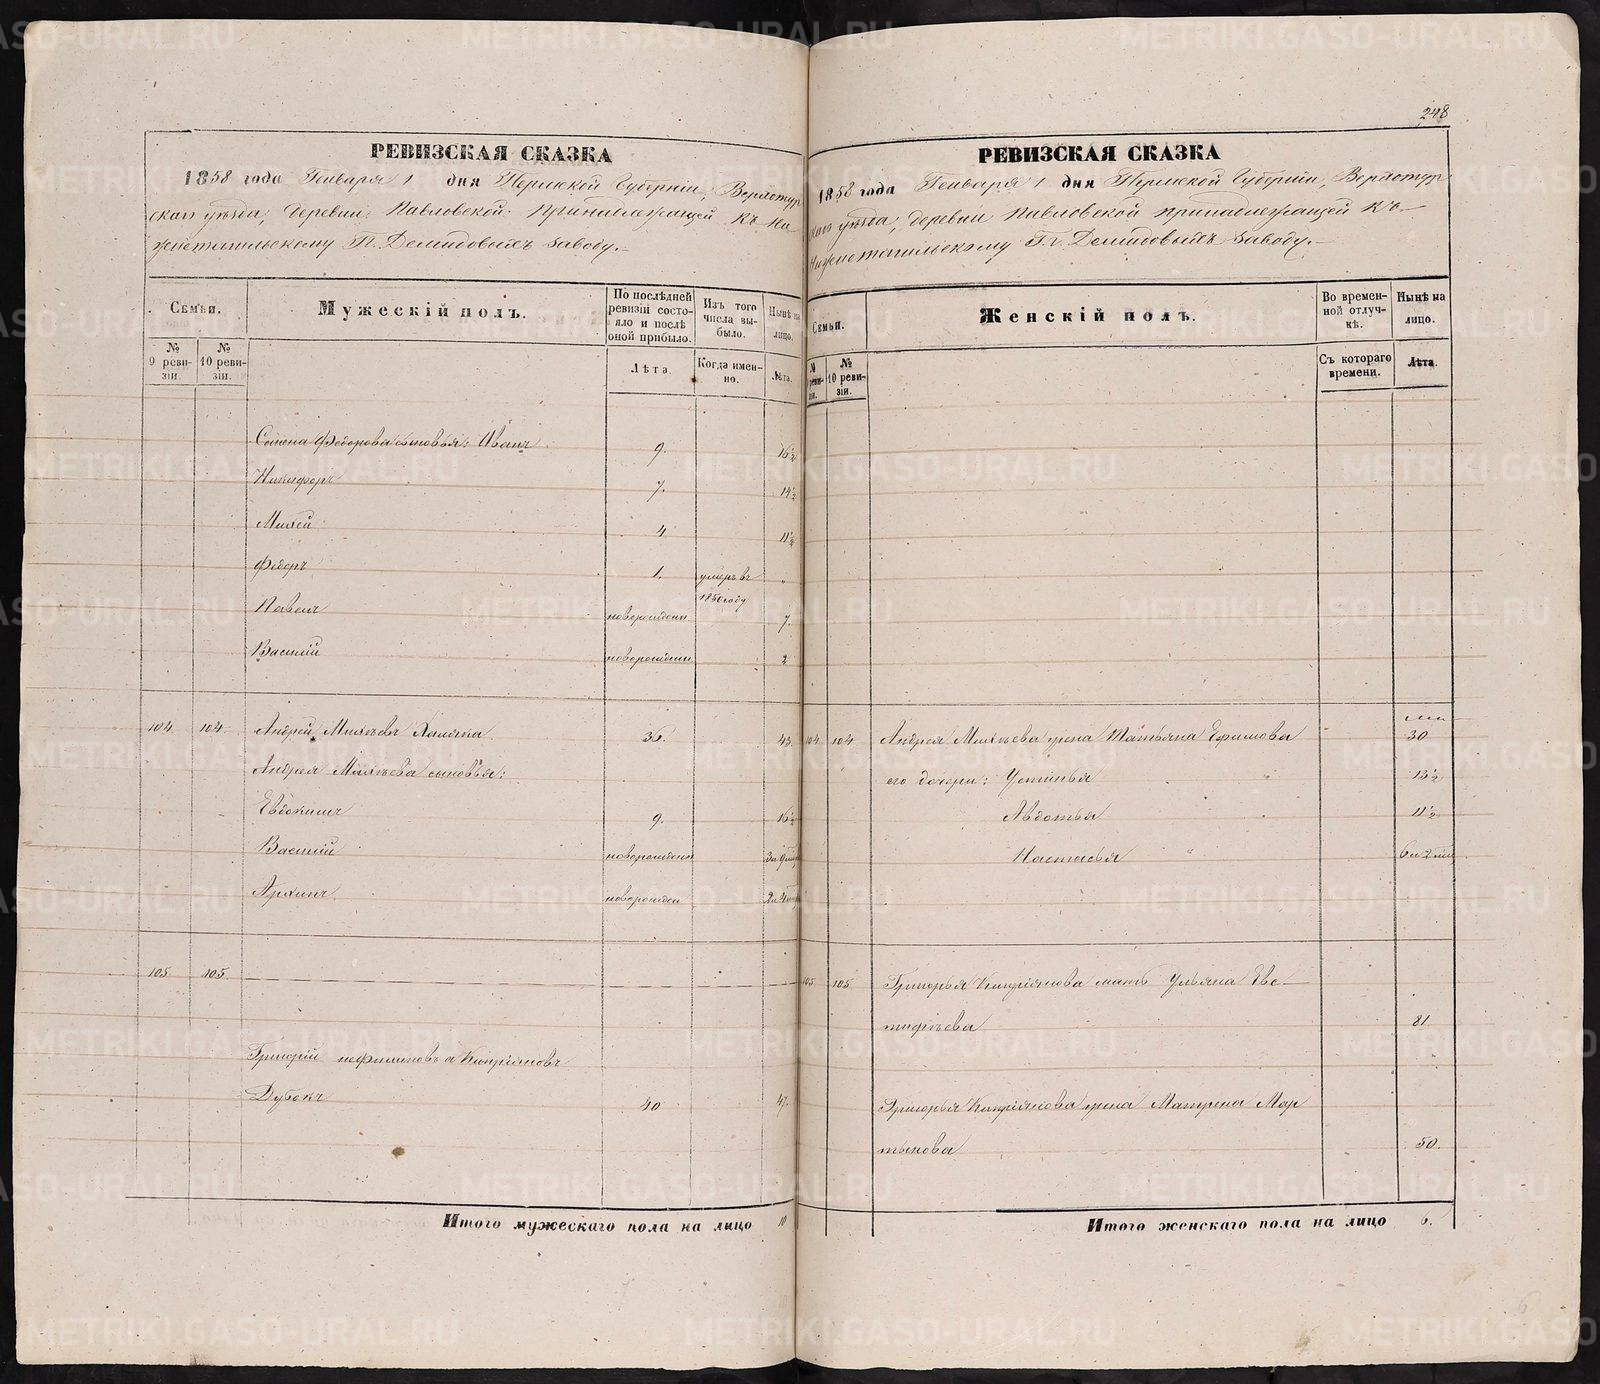 248
РЕВИЗСКАЯ СКАЗКА
1858 года Генваря 1 дня Пермской Губерніи, Верхотур
скаго уѣзда, деревни Павловской принадлежащей къ Ни-
жнетагильскому Гг. Демидовыхъ заводу.
Семьи.
Мужескій полъ.
По послѣдней ревизіи состояло и послѣ оной прибыло.
Изъ того числа выбыло.
Нынѣ на лицо.
№ 9 ревизіи.
№ 10 ревизіи.
Лѣта.
Когда именно.
Лѣта.
Семена Федорова сыновья: Иванъ 9. 16½
Никифоръ 7. 14½
Михей 4 11½
Федоръ 1. умеръ въ
1850 году
Павелъ новорожден. 7.
Василій новорожден 2
104. 104. Андрей Михѣевъ 36. 43.
Андрея Михѣева сыновья:
Евдокимъ 9. 16½
Василій новорожден
Архипъ новорожден
105 105
Григорій Кипріяновъ
Дубокъ 40 47.
Итого мужескаго пола на лицо 10
РЕВИЗСКАЯ СКАЗКА
1858 года Генваря 1 дня Пермской Губерніи, Верхотур
скаго уѣзда, деревни Павловской принадлежащей къ
Нижнетагильскому Гг. Демидовыхъ заводу.
Семьи.
Женскій полъ.
Во временной отлучкѣ.
Нынѣ на лицо.
№ ревизіи.
№ 10 ревизіи.
Съ котораго времени.
Лѣта.
104 104 Андрея Михѣева жена Татьяна Ефимова 30
его дочери: Устинья 13½
Авдотья 11½
Настасья
105 105. Григорья Кипріянова мать Ульяна Евс-
тифѣева 81
Григорья Кипріянова жена Матрена Мар
тынова 50.
Итого женскаго пола на лицо 6.
METRIKI.GASO-URAL.RU